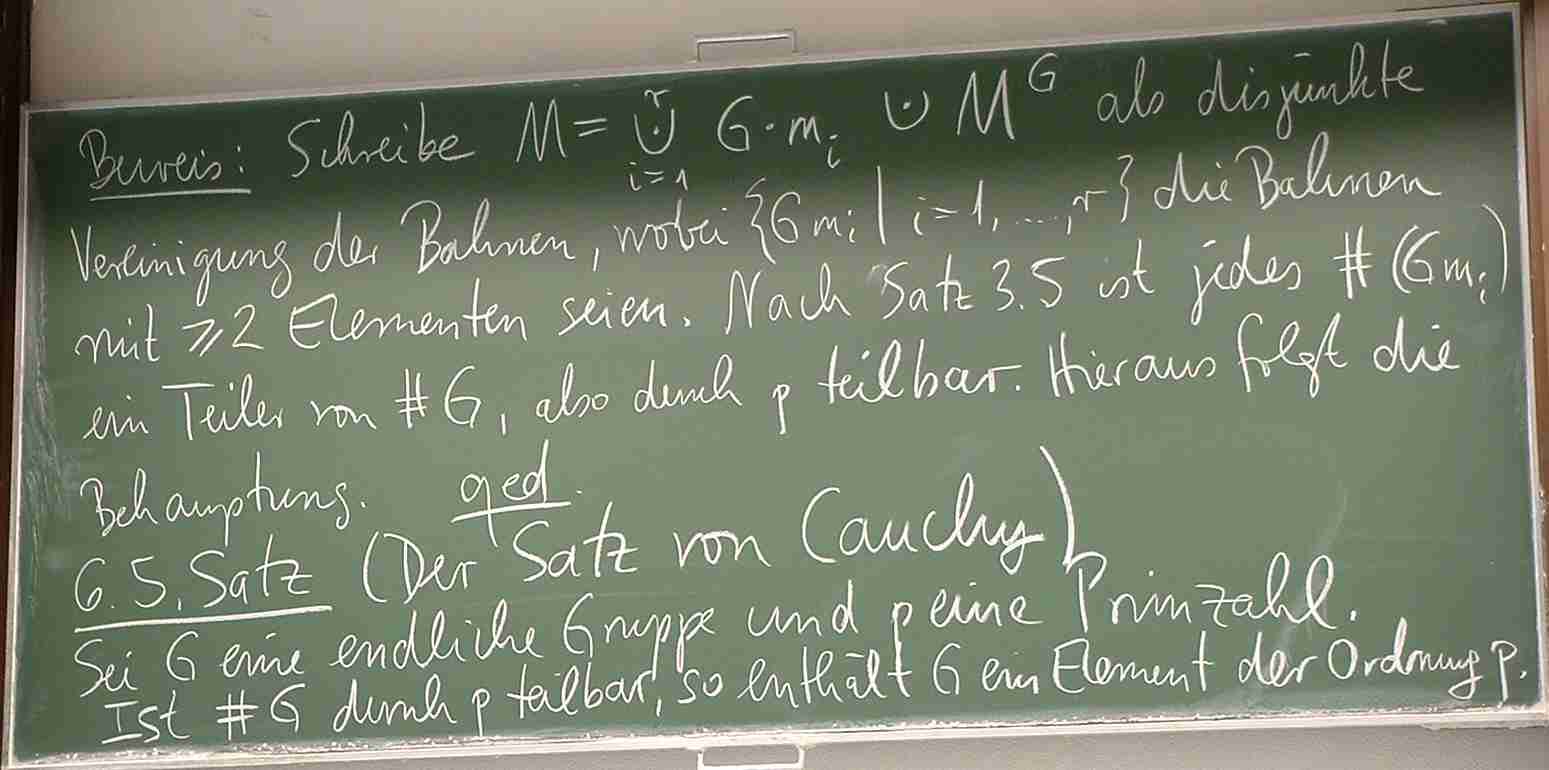 Beweis: Schreibe M = ⨃_{i=1}^{r} G·m_i ⊍ M^G als disjunkte
Vereinigung der Bahnen, wobei {Gm_i | i=1,...,r} die Bahnen
mit ⩾2 Elementen seien. Nach Satz 3.5 ist jedes #(Gm_i)
ein Teiler von #G, also durch p teilbar. Hieraus folgt die
Behauptung. qed.
6.5. Satz (Der Satz von Cauchy)
Sei G eine endliche Gruppe und p eine Primzahl.
Ist #G durch p teilbar, so enthält G ein Element der Ordnung p.